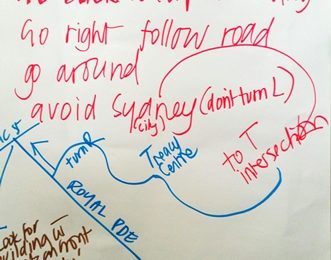 Go right follow road
go around
avoid Sydney (don't turn L)
(city)
to T
intersection
Treacy
Centre
turn R
ROYAL PDE
Look for
building w